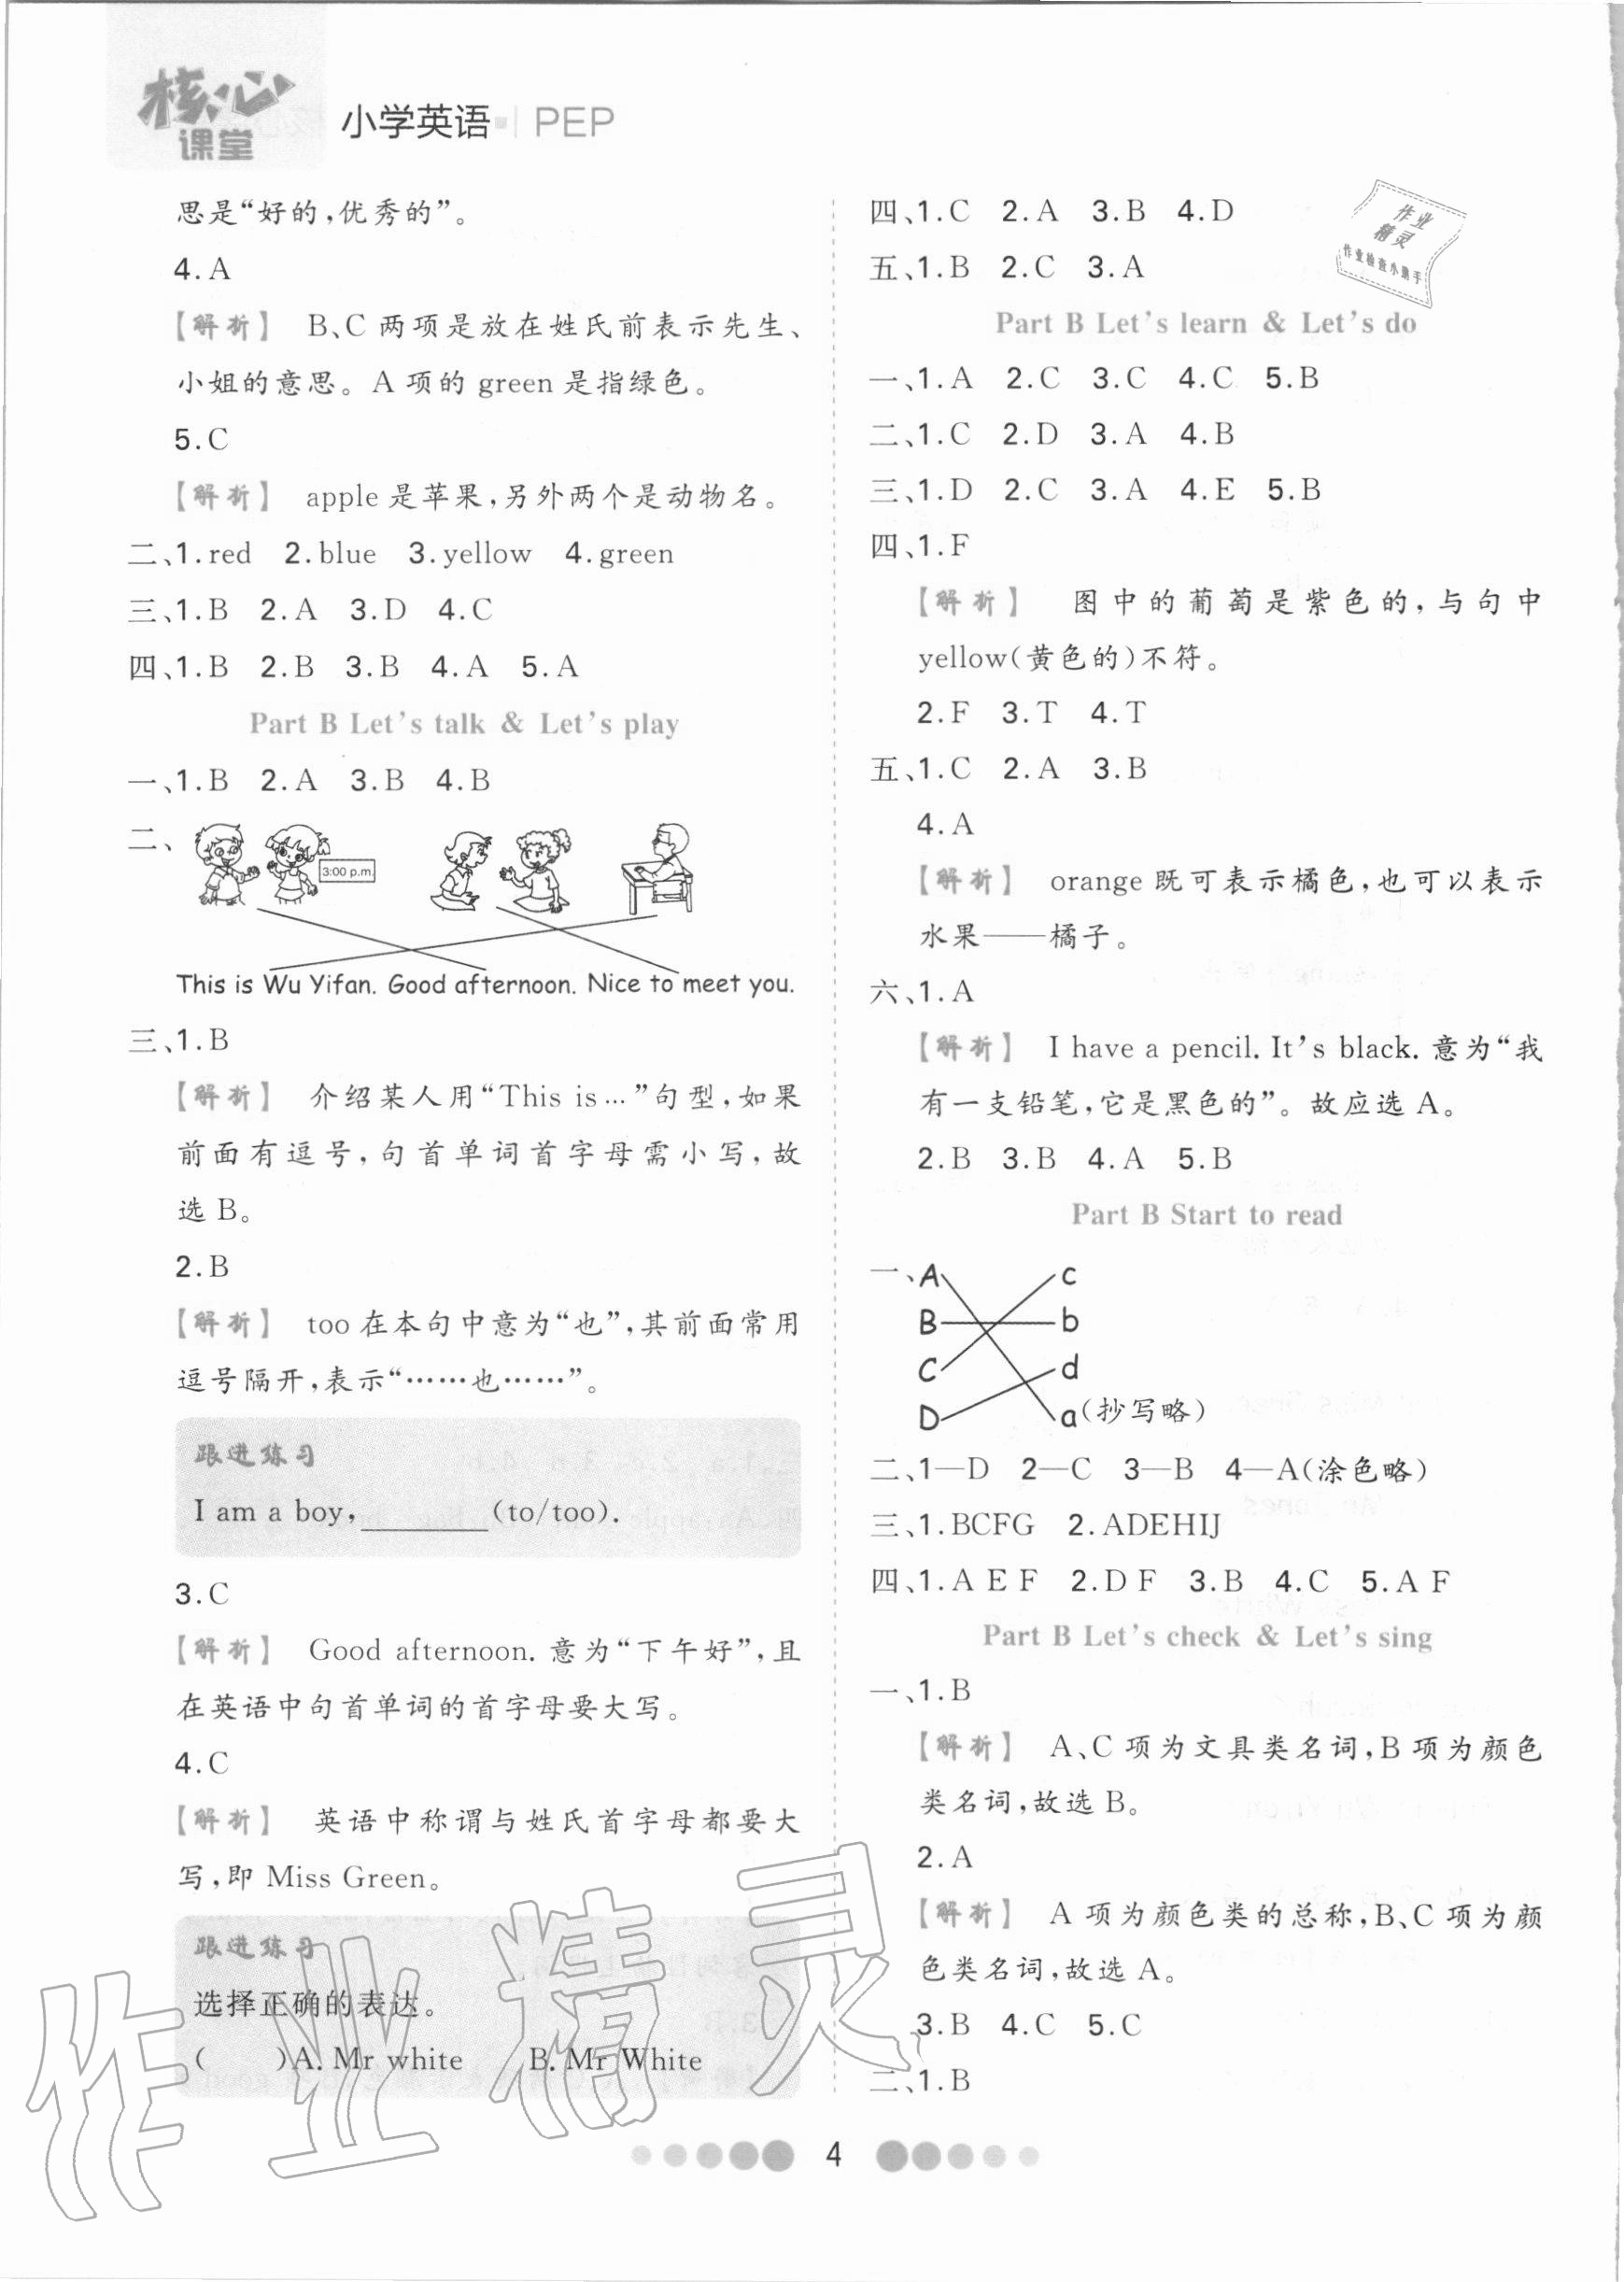 核心
课堂
小学英语 | PEP
思是“好的,优秀的”。
4.A
【解析】 B、C两项是放在姓氏前表示先生、
小姐的意思。A项的green是指绿色。
5.C
【解析】 apple是苹果,另外两个是动物名。
二、1.red 2.blue 3.yellow 4.green
三、1.B 2.A 3.D 4.C
四、1.B 2.B 3.B 4.A 5.A
Part B Let’s talk & Let’s play
一、1.B 2.A 3.B 4.B
二、
3:00 p.m.
This is Wu Yifan. Good afternoon. Nice to meet you.
三、1.B
【解析】 介绍某人用“This is…”句型,如果
前面有逗号,句首单词首字母需小写,故
选B。
2.B
【解析】 too在本句中意为“也”,其前面常用
逗号隔开,表示“……也……”。
跟进练习
I am a boy,________(to/too).
3.C
【解析】 Good afternoon. 意为“下午好”,且
在英语中句首单词的首字母要大写。
4.C
【解析】 英语中称谓与姓氏首字母都要大
写,即 Miss Green。
跟进练习
选择正确的表达。
( )A. Mr white B. Mr White
四、1.C 2.A 3.B 4.D
五、1.B 2.C 3.A
Part B Let’s learn & Let’s do
一、1.A 2.C 3.C 4.C 5.B
二、1.C 2.D 3.A 4.B
三、1.D 2.C 3.A 4.E 5.B
四、1.F
【解析】 图中的葡萄是紫色的,与句中
yellow(黄色的)不符。
2.F 3.T 4.T
五、1.C 2.A 3.B
4.A
【解析】 orange既可表示橘色,也可以表示
水果——橘子。
六、1.A
【解析】 I have a pencil. It’s black. 意为“我
有一支铅笔,它是黑色的”。故应选A。
2.B 3.B 4.A 5.B
Part B Start to read
一、A c
B b
C d
D a(抄写略)
二、1—D 2—C 3—B 4—A(涂色略)
三、1.BCFG 2.ADEHIJ
四、1.A E F 2.D F 3.B 4.C 5.A F
Part B Let’s check & Let’s sing
一、1.B
【解析】 A、C项为文具类名词,B项为颜色
类名词,故选B。
2.A
【解析】 A项为颜色类的总称,B、C项为颜
色类名词,故选A。
3.B 4.C 5.C
二、1.B
4
作业
精灵
作业检查小助手
作业精灵